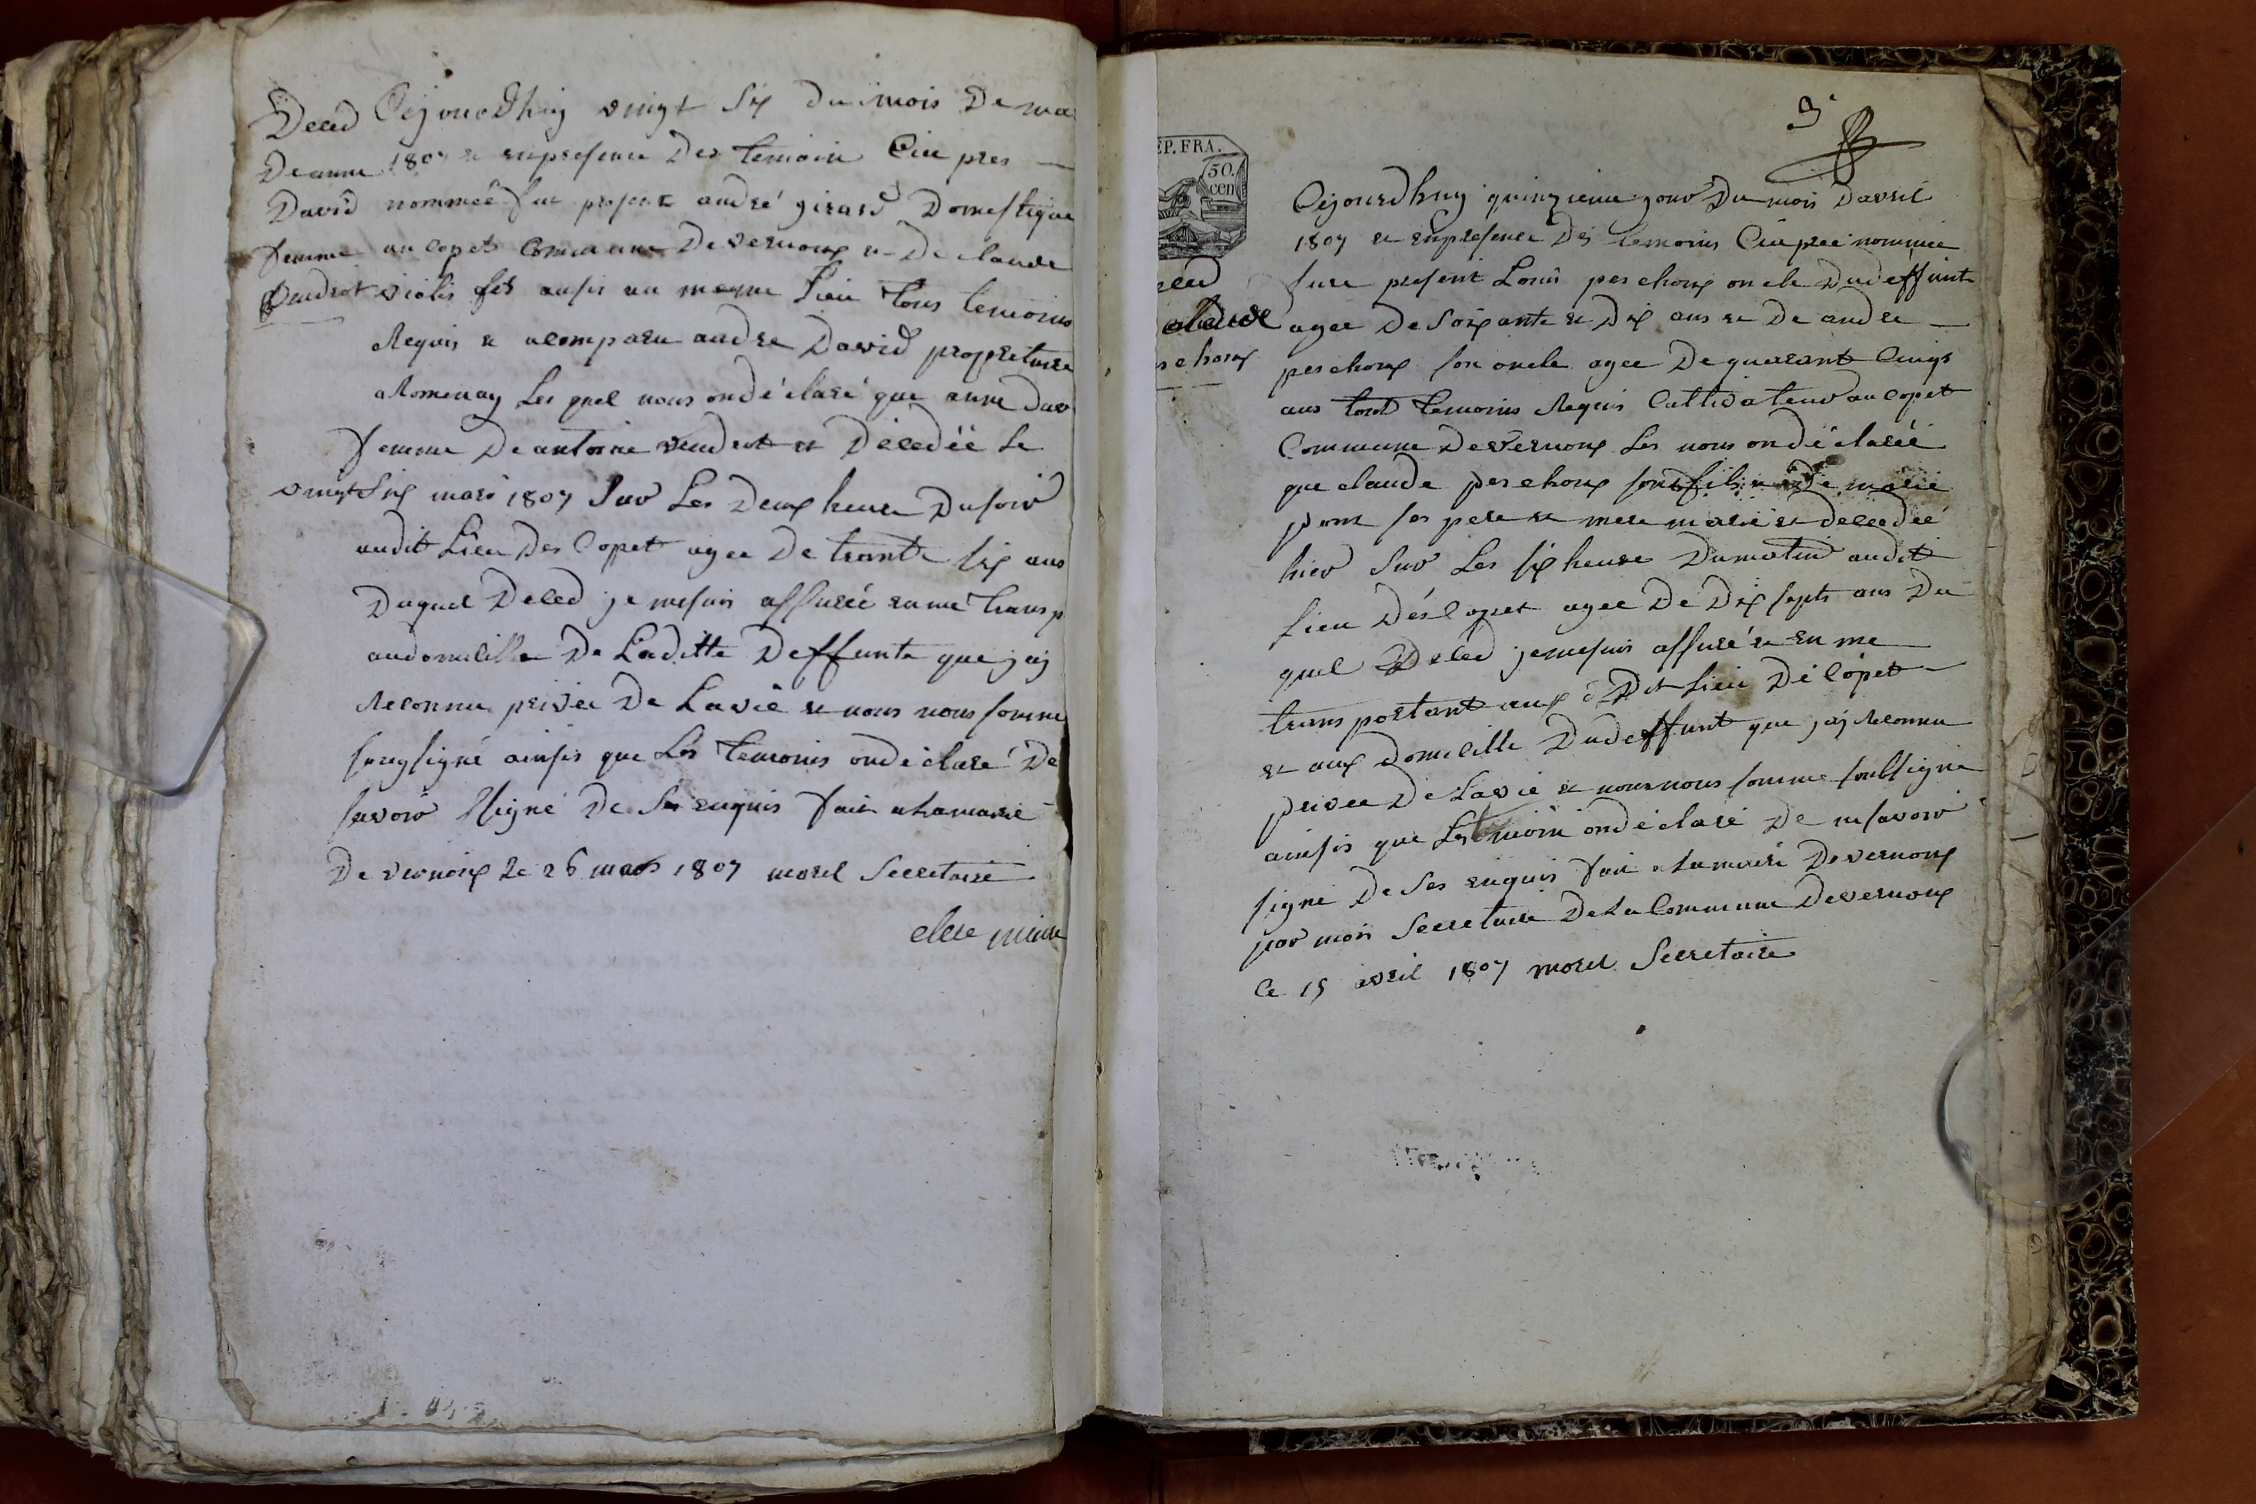 Deced
De anne
David
femme
vendrot
Cejourdhuy vingt six du mois De ma
1807 et enpresence Des temoin Cie pres
nommée fut present andré girard Domestique
au copet Commune De vernoux et De claude
violis fils ausis au meme Lieu tous temoins
Requis et acomparu andre David propretaire
a Romenay Les quel nous ondéclaré que anne Dav
femme De antoine vendrot et Décedéé Le
vingt six mars 1807 Sur Les Deux heure Dusoir
audit Lieu Des Copet agee De trante six ans
Duquel Deced je mesuis assureé enme transp
audomicille De Laditte Deffunte que jaj
Reconnu privée De Lavie et nous nous somme
sousigné ainsis que Les temoins ondéclaré De
savoir signé De Se enquis fait a Lamarie
De vernoux Le 26 mars 1807 morel Secretaire
clere maire
3e
EP. FRA.
50.
cen
ced
claude
schoux
Cejourdhuy quinzieme jour Du mois Davril
1807 et enpresence Des temoins Cie prée nommée
fure present Louis perchoux oncle Dudeffunt
agee De Soixante et Dix ans et De andre
perchoux son oncle agee De quarant Cinqs
ans tout temoins Requis Cultivateur au copet
Commune Devernoux Les nous ondéclaréé
que claude perchoux fils De marie
pont ses pere et mere marié et decedéé
hier Sur Les six heure Dumatin audit
Lieu Dés Copet agee De Dix septs ans Du
quel Deced jemesuis assuré et en me
transportant aux Dit Lieu Dé Copet
et aux Domicille Dudeffunt que jaj Reconnu
privee De Lavie et nous nous somme soubsigne
ainsis que Les temoin ondéclaré De nesavoir
signe De Ses enquis fait a Lamarie Devernoux
par mois Secretaire De La Commune Devernoux
Ce 15 avril 1807 morel Secretaire